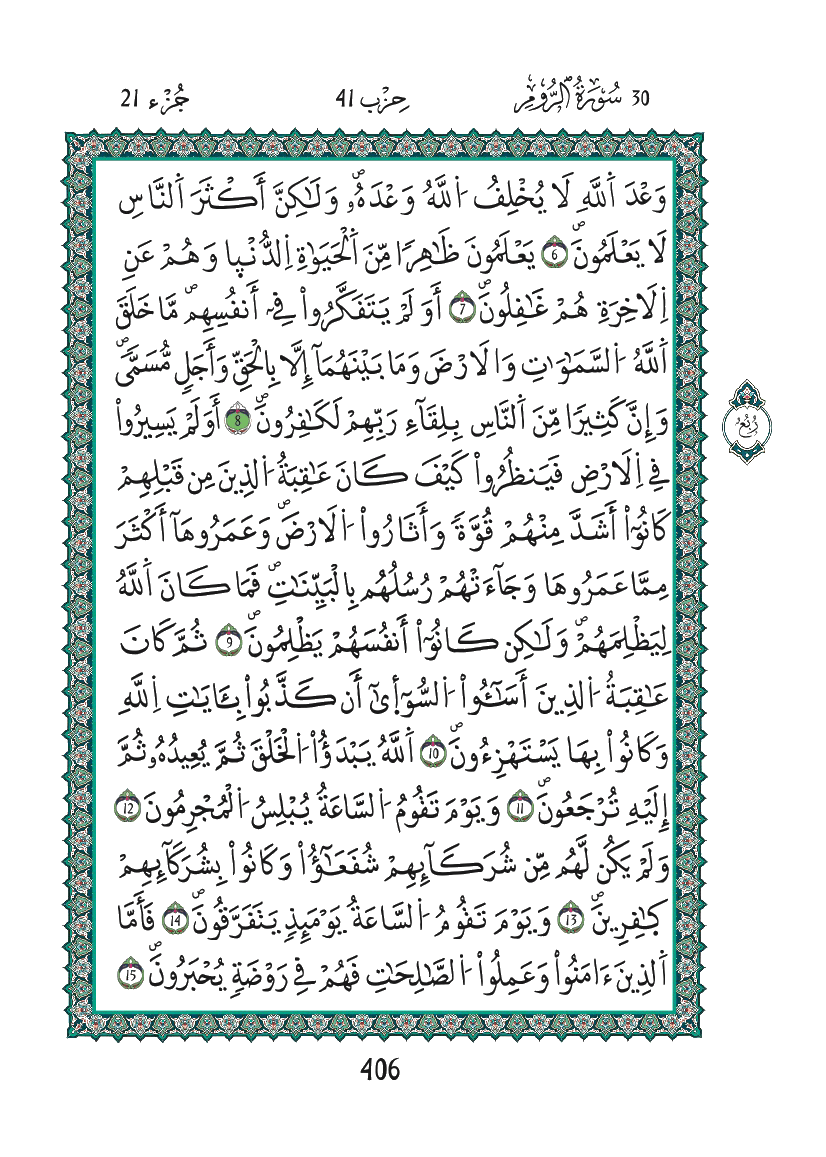 30 سُورَةُ الرُّومِ حِزْب 41 جُزْء 21
وَعْدَ اَ۬للَّهِ لَا يُخْلِفُ اُ۬للَّهُ وَعْدَهُۥۖ وَلَٰكِنَّ أَكْثَرَ اَ۬لنَّاسِ
لَا يَعْلَمُونَۖ 6 يَعْلَمُونَ ظَٰهِرٗا مِّنَ اَ۬لْحَيَوٰةِ اِ۬لدُّنْي۪ا وَهُمْ عَنِ
اِ۬لَاخِرَةِ هُمْ غَٰفِلُونَۖ 7 أَوَلَمْ يَتَفَكَّرُواْ فِےٓ أَنفُسِهِمۖ مَّا خَلَقَ
اَ۬للَّهُ اُ۬لسَّمَٰوَٰتِ وَالَارْضَ وَمَا بَيْنَهُمَآ إِلَّا بِالْحَقِّ وَأَجَلٖ مُّسَمّيٗۖ
وَإِنَّ كَثِيرٗا مِّنَ اَ۬لنَّاسِ بِلِقَآءِ رَبِّهِمْ لَكَٰفِرُونَۖ 8 أَوَلَمْ يَسِيرُواْ
رُبُع
فِے اِ۬لَارْضِ فَيَنظُرُواْ كَيْفَ كَانَ عَٰقِبَةُ اُ۬لذِينَ مِن قَبْلِهِمْ
كَانُوٓاْ أَشَدَّ مِنْهُمْ قُوَّةٗ وَأَثَارُواْ اُ۬لَارْضَۖ وَعَمَرُوهَآ أَكْثَرَ
مِمَّا عَمَرُوهَا وَجَآءَتْهُمْ رُسُلُهُم بِالْبَيِّنَٰتِۖ فَمَا كَانَ اَ۬للَّهُ
لِيَظْلِمَهُمْۖ وَلَٰكِن كَانُوٓاْ أَنفُسَهُمْ يَظْلِمُونَۖ 9 ثُمَّ كَانَ
عَٰقِبَةُ اُ۬لذِينَ أَسَٰٓـُٔواْ اُ۬لسُّوٓأ۪يٰٓ أَن كَذَّبُواْ بِـَٔايَٰتِ اِ۬للَّهِ
وَكَانُواْ بِهَا يَسْتَهْزِءُونَۖ 10 اَ۬للَّهُ يَبْدَؤُاْ اُ۬لْخَلْقَ ثُمَّ يُعِيدُهُۥ ثُمَّ
إِلَيْهِ تُرْجَعُونَۖ 11 وَيَوْمَ تَقُومُ اُ۬لسَّاعَةُ يُبْلِسُ اُ۬لْمُجْرِمُونَ 12
وَلَمْ يَكُن لَّهُم مِّن شُرَكَآئِهِمْ شُفَعَٰٓؤُاْ وَكَانُواْ بِشُرَكَآئِهِمْ
كٰ۪فِرِينَۖ 13 وَيَوْمَ تَقُومُ اُ۬لسَّاعَةُ يَوْمَئِذٖ يَتَفَرَّقُونَۖ 14 فَأَمَّا
اَ۬لذِينَ ءَامَنُواْ وَعَمِلُواْ اُ۬لصَّٰلِحَٰتِ فَهُمْ فِے رَوْضَةٖ يُحْبَرُونَۖ 15
406